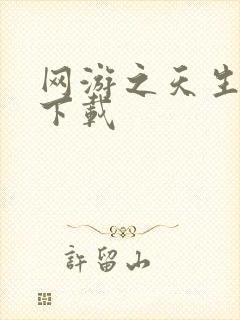 网游之天生
下载
許留山